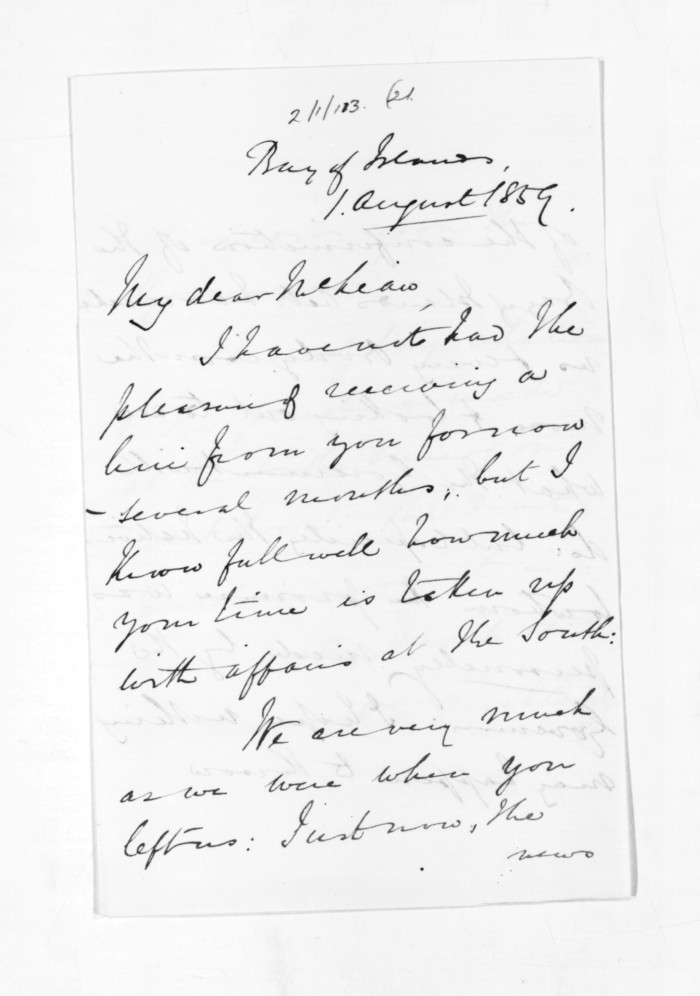 2/1/113. (21.
Bay of Islands,
1. August 1859.
My dear McLean,
I have not had the
pleasure of receiving a
line from you for now
- several months; but I
know full well how much
your time is taken up
with affairs at the South:
We are very much
as we were when you
left us: Just now, the
news